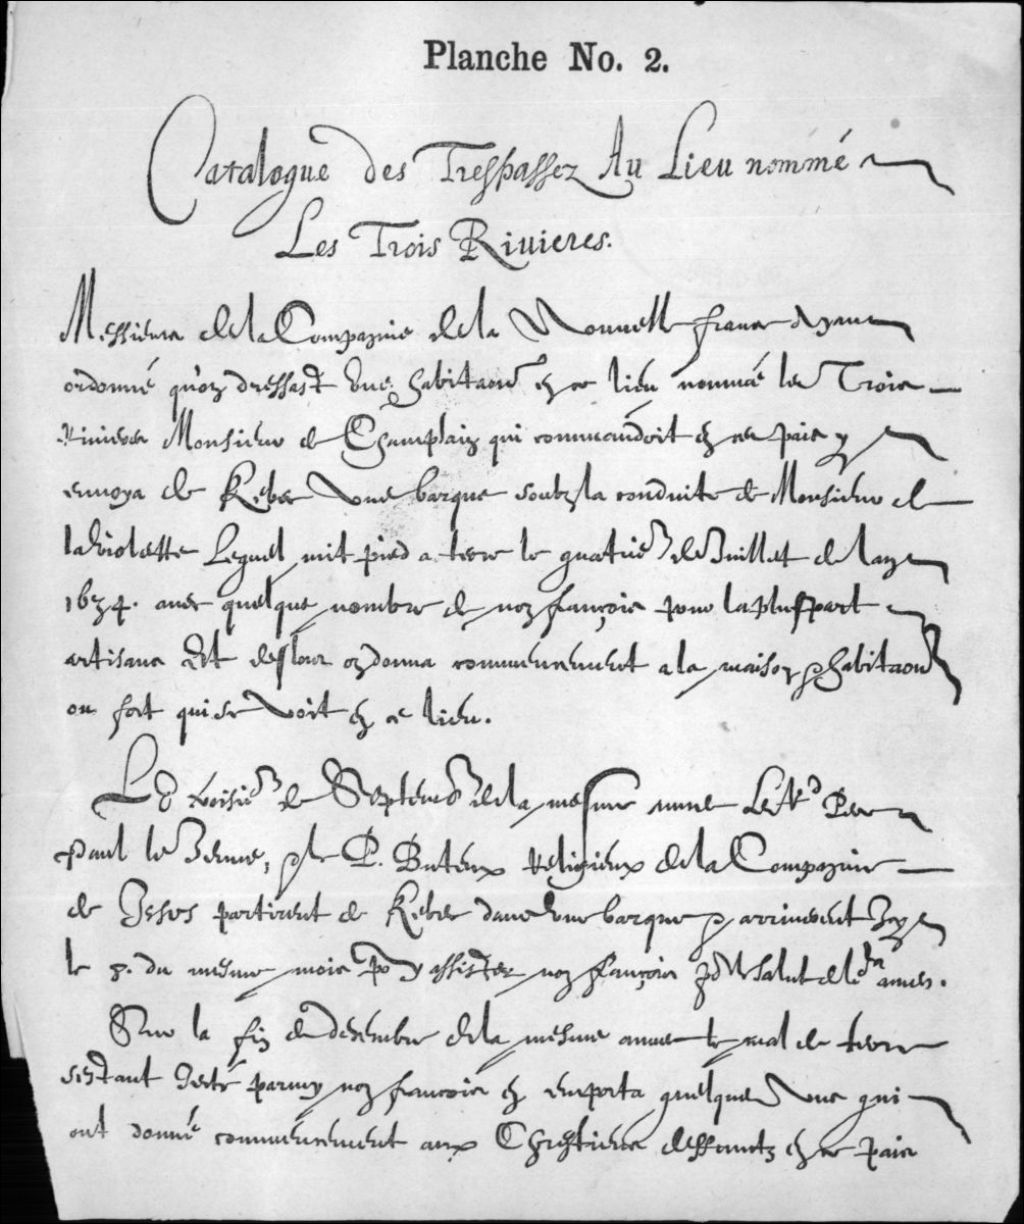 Planche No. 2.
Catalogue des Trespassez Au Lieu nommé
Les Trois Rivieres.
Messieurs de la Compagnie de la Nouvelle france ayans
ordonné qu'on dressast une habitaon en ce lieu nommé les Trois
Rivieres Monsieur de Champlain qui commandoit en ce païs y
envoya de Kebec une barque soubz la conduite de Monsieur de
laviolette Lequel mit pied a terre le quatriem de Juillet de lan
1634. avec quelque nombre de noz françois pour la pluspart
artisans Et deslors on donna commencement a la maison & habitaon
ou fort qui se voit en ce lieu.
Le troisiem de Septembr de la mesme annee Le Rd Pere
Paul le Jeune, & le P. Buteux Religieux de la Compagnie
de Jesus partirent de Kebec dans une barque & arriverent Icy
le 8. du mesme mois pr y assister noz françois pr le salut de leurs ames.
Sur la fin de decembre de la mesme annee le mal de terre
sestant Jecté parmy noz francois en emporta quelques uns qui
ont donné commencement aux Chrestiens deffunctz en ce païs